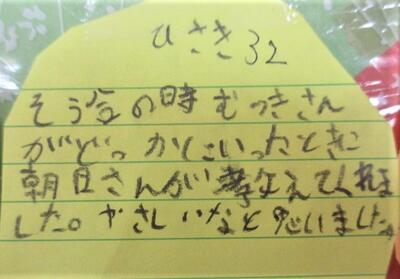 ひさき32
そう合の時むつきさん
がどっかにいったときに
朝日さんが教えてくれま
した。やさしいなと思いました。